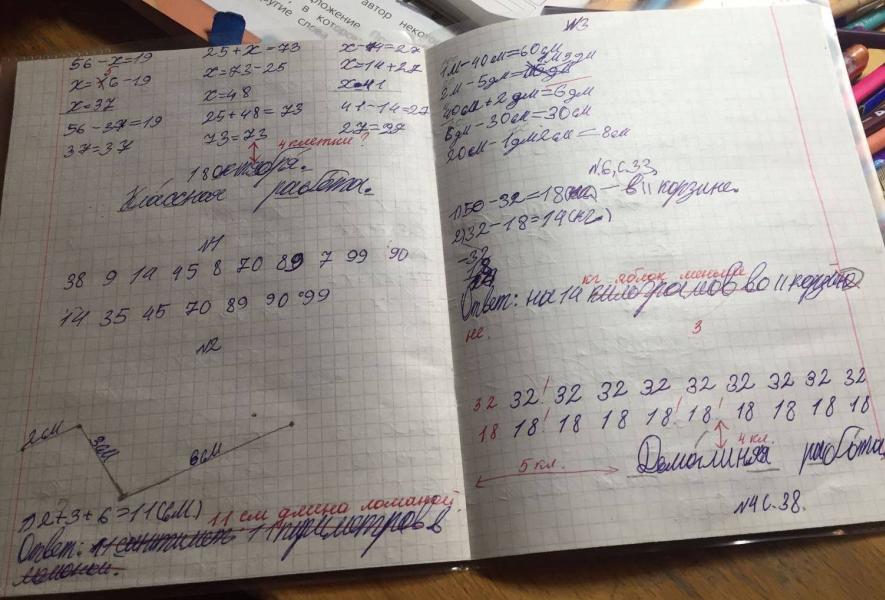 предложение
автор
в кото
другие слова
56-x=19 25+x=73 x-14=27
x=56-19 x=73-25 x=14+27
x=37 x=48 x=41
56-37=19 25+48=73 41-14=27
37=37 73=73 27=27
4 клетки?
18 октября.
Классная работа.
№1
38 9 14 45 8 70 89 7 99 90
14 35 45 70 89 90 99
№2
2см 3см 6см
1) 2+3+6=11(см)
11 см длина ломаной.
Ответ: 11 сантимет 11 
ломонои.
№3
1м-40см=60дм
2м-5дм=
40см+2дм=6дм
6дм-30см=30см
20см-1дм2см=8см
№6, с.33,
1) 50-32=18(кг) - в II корзине.
2) 32-18=14(кг.)
-32
18
кг яблок меньше
Ответ: на 14 килограмов во II корзи
не. 3
32 32! 32 32 32 32 32 32 32 32
18 18! 18 18 18! 18! 18 18 18 18
5 кл. 4 кл.
Домашняя работа
№4 с.38.